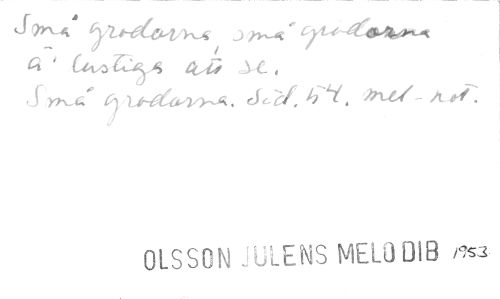 Små grodorna, små grodorna
ä' lustiga att se.
Små grodorna. Sid. 54. mel-not.
OLSSON JULENS MELODIB 1953